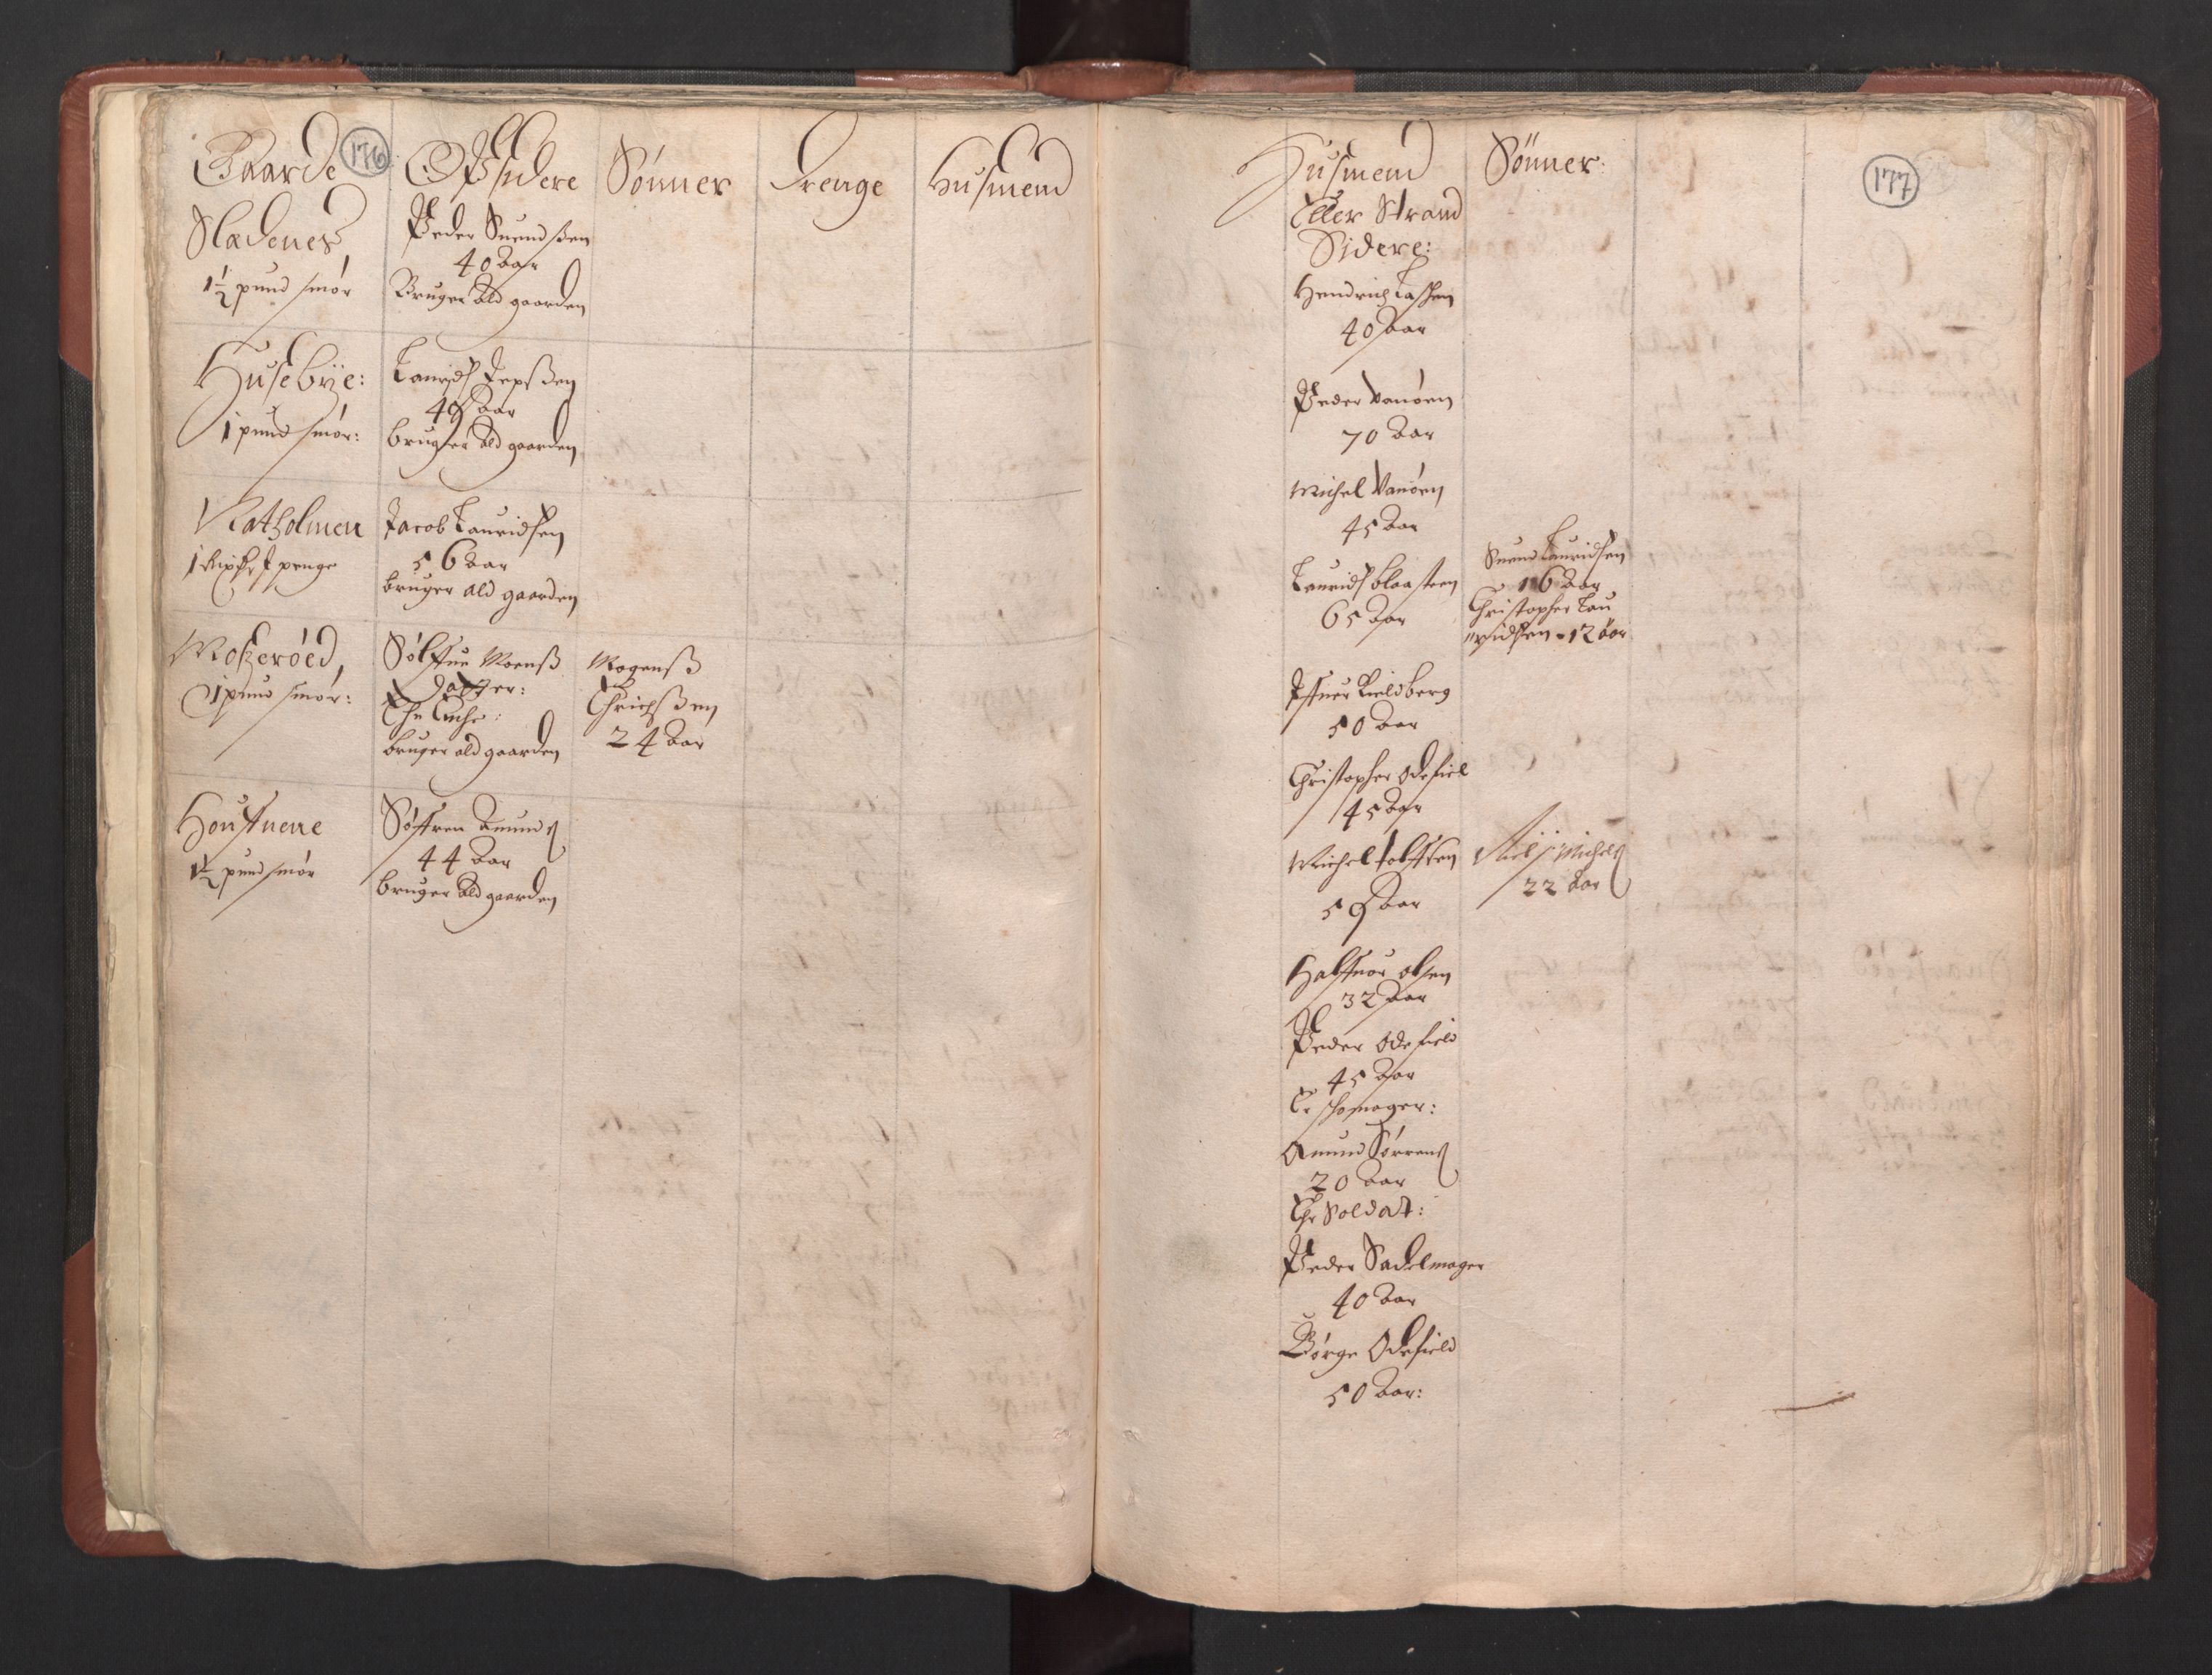 Gaarde 176 Opsidere Sønner Drenge Husmend
Sladenes
1½ pund smør
Peder Suendsßen
40 aar
Bruger ald gaarden
Husebÿe:
1 pund smør:
Lauridtz Jepsßen
49 aar
bruger ald gaarden
Ratholmen
penge
Jacob Lauridsen
56 aar
bruger ald gaarden
Mokerøed,
1 pund smør:
Sølffue Moensß
Datter:
En Encke:
bruger ald gaarden
Mogensß
Erichsßen
24 aar
Houffuene
1½ pund smør
Søffren Amunds
44 aar
bruger ald gaarden
177
Husmend Sønner:
Eller Strand
Sidere:
Hendrich Lassen
40 aar
Peder Vanøen
70 aar
Michel Vanøen
45 aar
Lauridtz blaasteen
65 aar
Suend Lauridsen
16 aar
Christopher Lau
ridsen - 12 aar
Iffuer Kieldberg
50 aar
Christopher Odefiel
45 aar
Michel tolffsen
59 aar
Niels Michels
22 aar
Halffuor olsen
32 aar
Peder Odefield
45 aar
En skomager:
Amund Sørrens
20 aar
Er Soldat:
Peder Sadelmager
40 aar
Børge Odefield
50 aar: